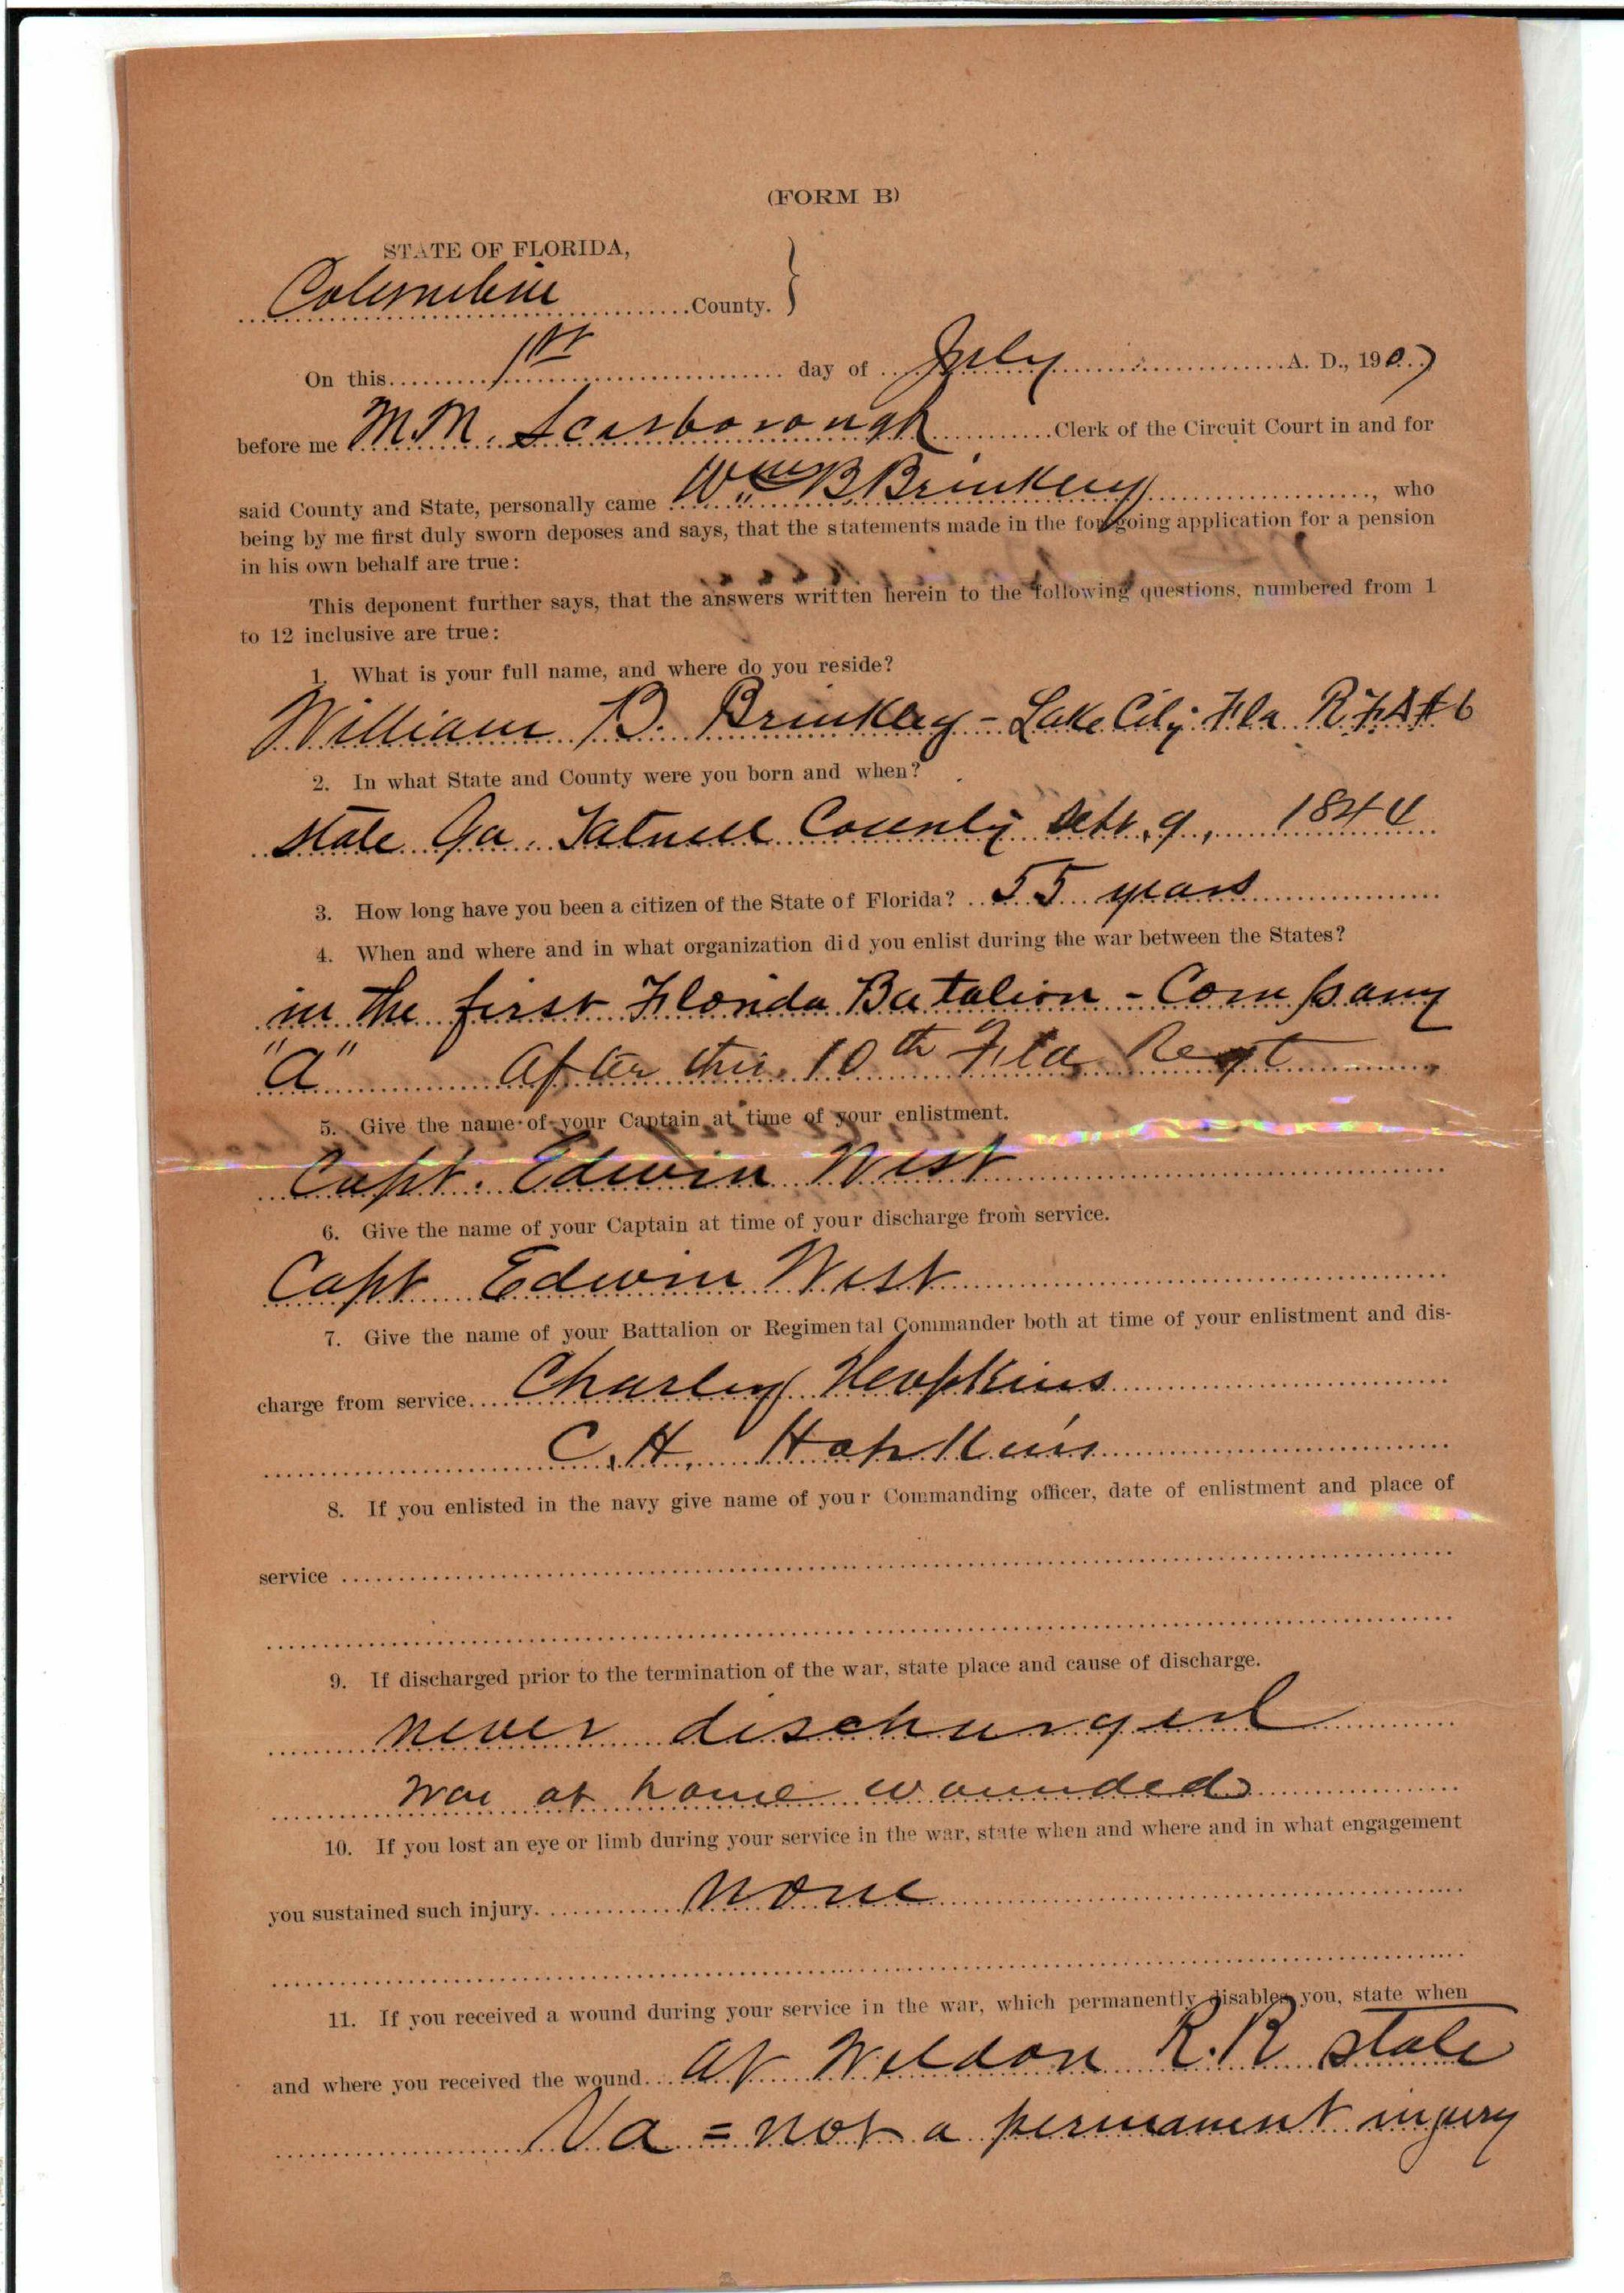 (FORM B)
STATE OF FLORIDA,
Columbia County.
On this 1st day of July A. D., 1907
before me M.M. Scarborough Clerk of the Circuit Court in and for
said County and State, personally came Wm B Brinkley, who
being by me first duly sworn deposes and says, that the statements made in the foregoing application for a pension
in his own behalf are true:
This deponent further says, that the answers written herein to the following questions, numbered from 1
to 12 inclusive are true:
1. What is your full name, and where do you reside?
William B. Brinkley - Lake City Fla R.F.D # 6
2. In what State and County were you born and when?
state Ga. Tatnell County Sept. 9, 1844
3. How long have you been a citizen of the State of Florida? 55 years
4. When and where and in what organization did you enlist during the war between the States?
in the first Florida Batalion - Company
"A" After this 10th Fla Regt
5. Give the name of your Captain at time of your enlistment.
Capt. Edwin West
6. Give the name of your Captain at time of your discharge from service.
Capt Edwin West
7. Give the name of your Battalion or Regimental Commander both at time of your enlistment and dis-
charge from service. Charley Hopkins
C.H. Hopkins
8. If you enlisted in the navy give name of your Commanding officer, date of enlistment and place of
service
9. If discharged prior to the termination of the war, state place and cause of discharge.
never discharged
was at home wounded
10. If you lost an eye or limb during your service in the war, state when and where and in what engagement
you sustained such injury. none
11. If you received a wound during your service in the war, which permanently disables you, state when
and where you received the wound. at Weldon R.R state
Va = not a permanent injury